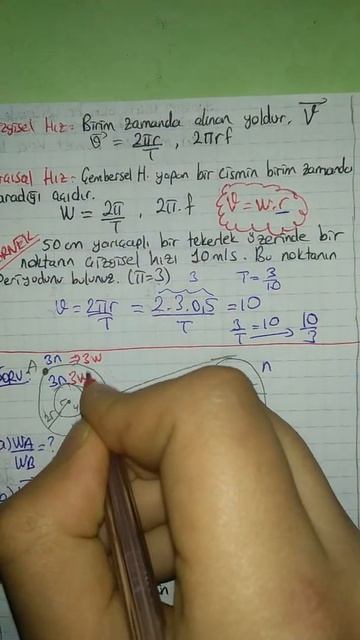 Çizgisel Hız: Birim zamanda alınan yoldur. V
ϑ = 2πr/T , 2πrf
Hız: Çembersel H. yapan bir cismin birim zamanda
taradığı açıdır.
W = 2π/T , 2π.f
V = w.r
ÖRNEK 50 cm yarıçaplı bir tekerlek üzerinde bir
noktanın çizgisel hızı 10 m/s. Bu noktanın
Periyodunu bulunuz. (π=3) 3 T = 3/10
ϑ = 2πr/T = 2.3.0,5/T = 10
3/T = 10 → 10/3
A 3n 3w n
SORU: 3n 3w
a) WA/WB = ?